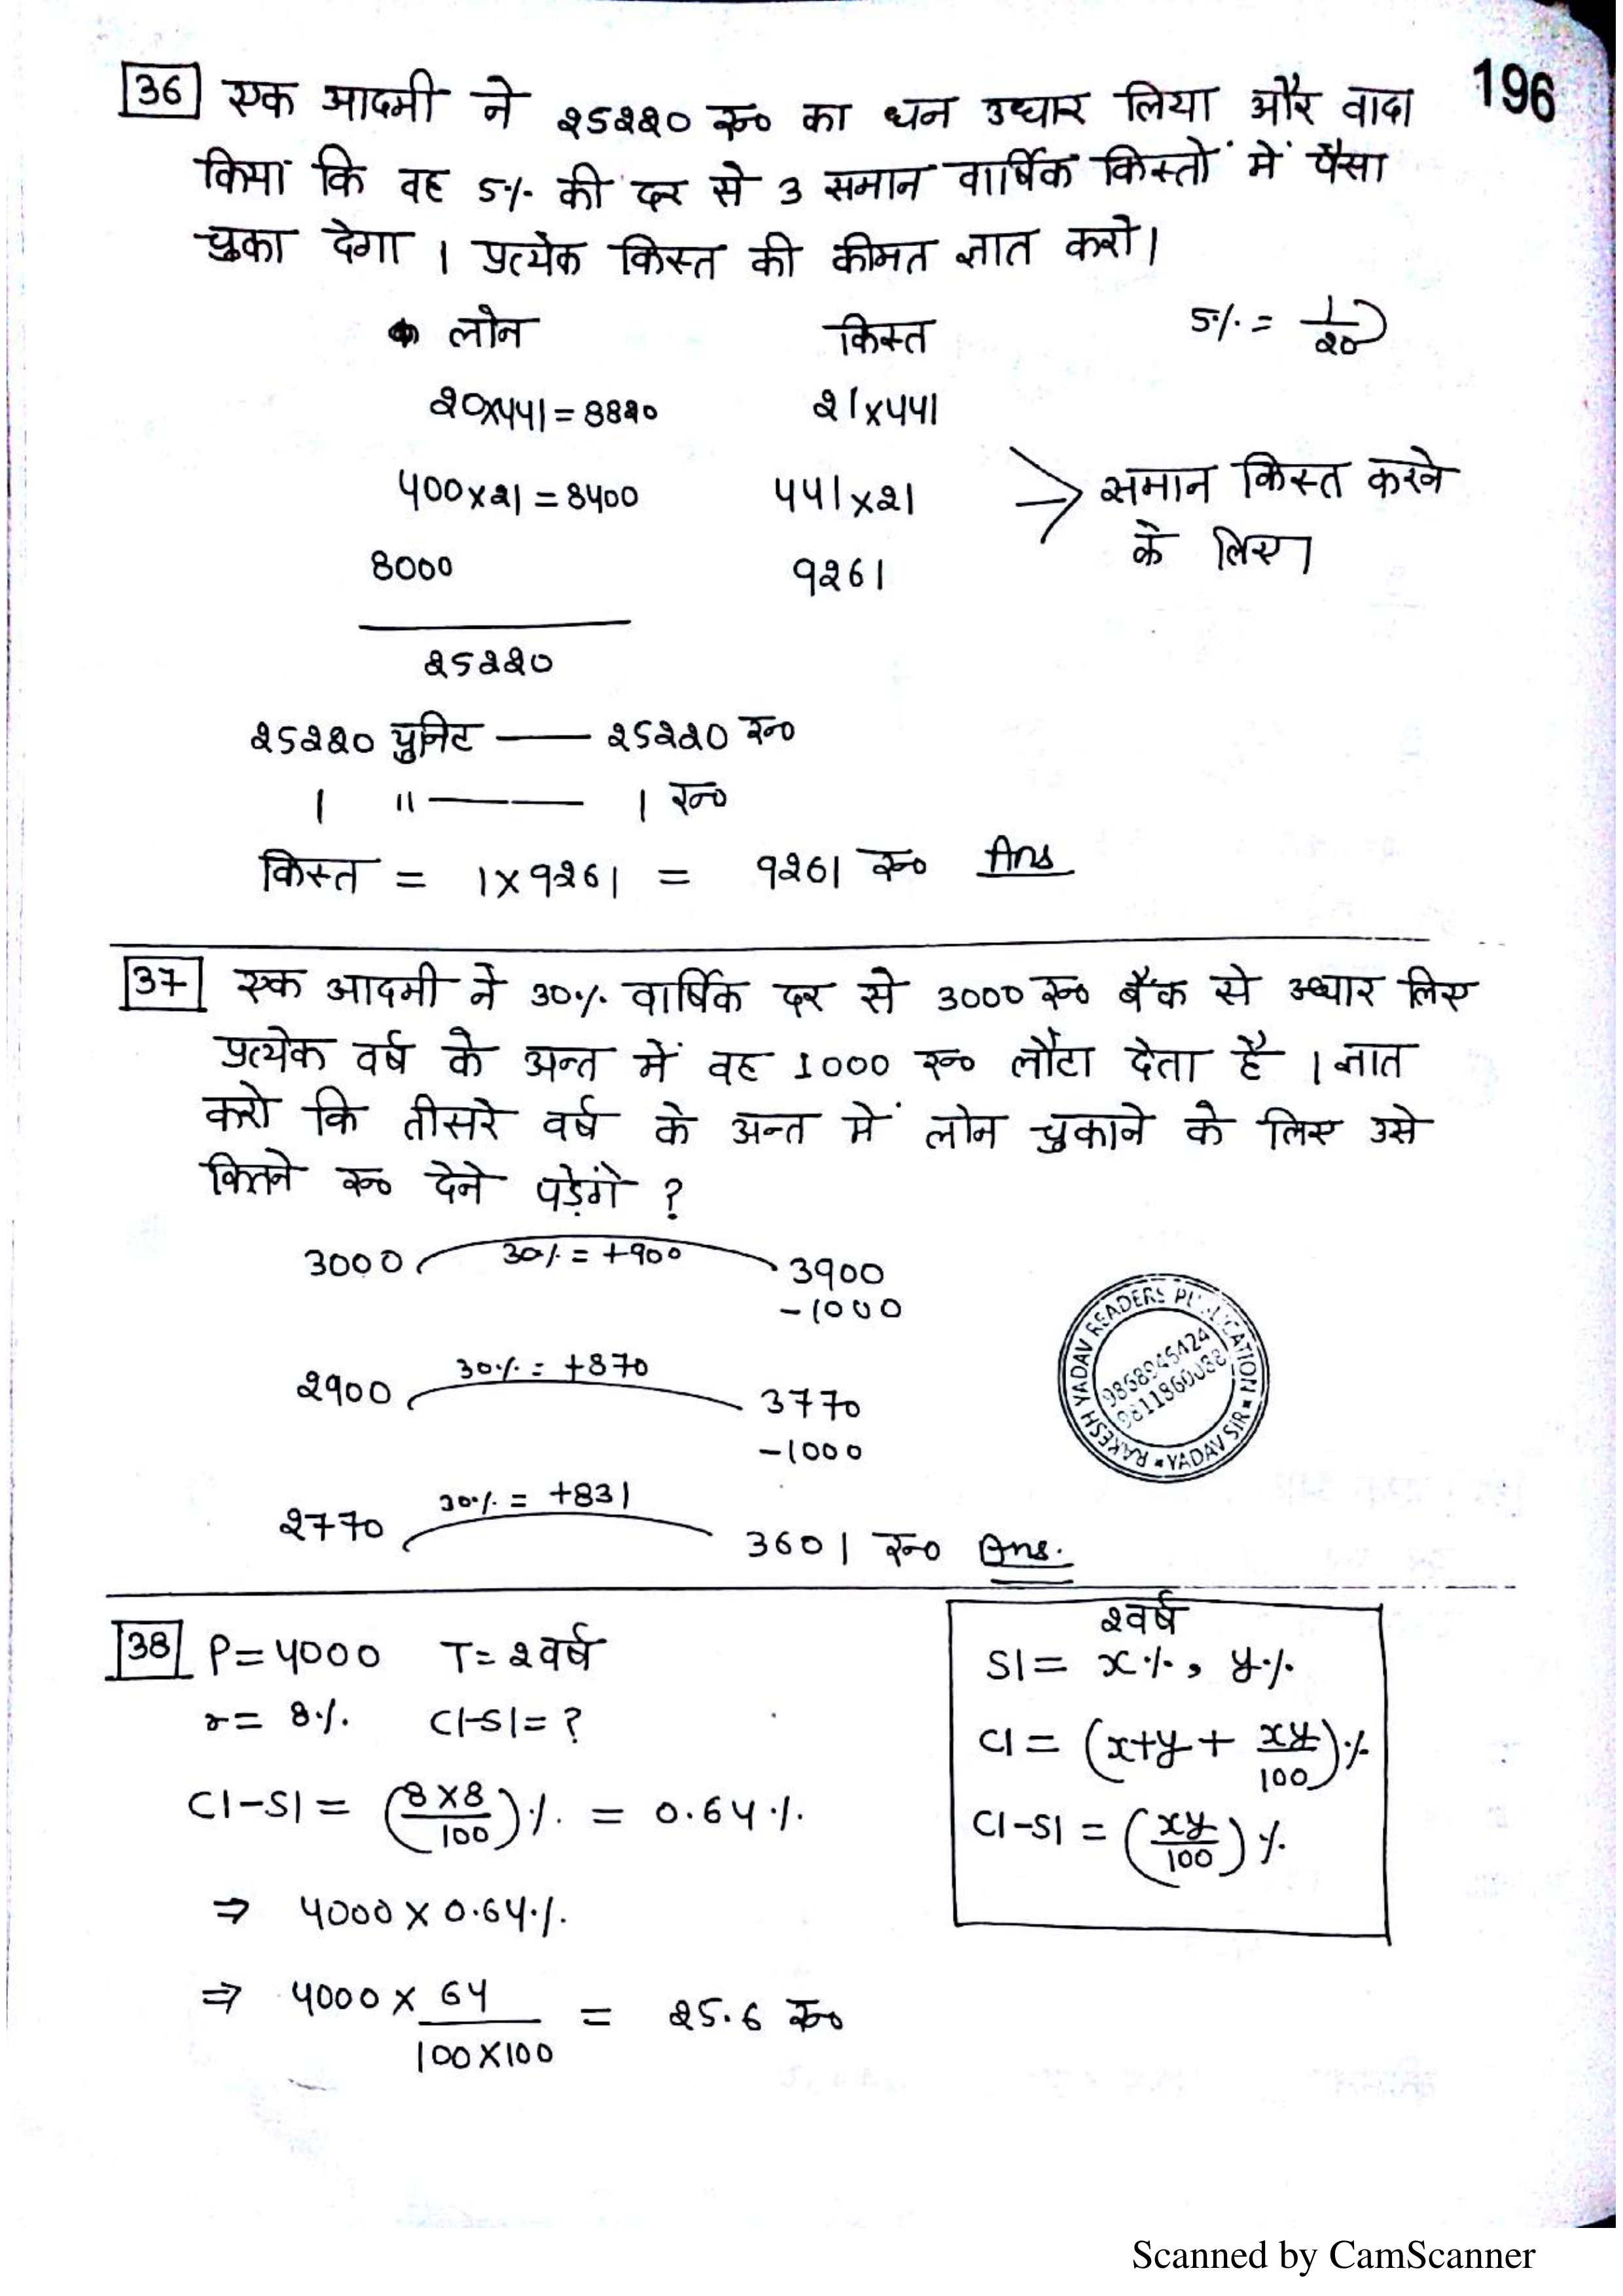 196
36 एक आदमी ने 25220 रू० का धन उधार लिया और वादा
किया कि वह 5% की दर से 3 समान वार्षिक किस्तों में पैसा
चुका देगा । प्रत्येक किस्त की कीमत ज्ञात करो।
लोन किस्त 5% = 1/20
20x441 = 8820 21x441
400x21 = 8400 441x21 → समान किस्त करने
के लिए।
8000 9261
25220
25220 युनिट — 25220 रू०
1 " — 1 रू०
किस्त = 1x9261 = 9261 रू० Ans
37 एक आदमी ने 30% वार्षिक दर से 3000 रू० बैंक से उधार लिए
प्रत्येक वर्ष के अन्त में वह 1000 रू० लौटा देता है । ज्ञात
करो कि तीसरे वर्ष के अन्त में लोन चुकाने के लिए उसे
कितने रू० देने पड़ेंगे ?
3000 30% = +900 3900
-1000
2900 30% = +870 3770
-1000
2770 30% = +831 3601 रू० Ans.
RAKESH YADAV READERS PUBLICATION * YADAV SIR *
38 P = 4000 T = 2 वर्ष
r = 8% CI-SI = ?
CI-SI = (8x8/100)% = 0.64%
⇒ 4000 x 0.64%
⇒ 4000 x 64/100x100 = 25.6 रू०
2 वर्ष
SI = x%, y%
CI = (x+y + xy/100)%
CI-SI = (xy/100)%
Scanned by CamScanner